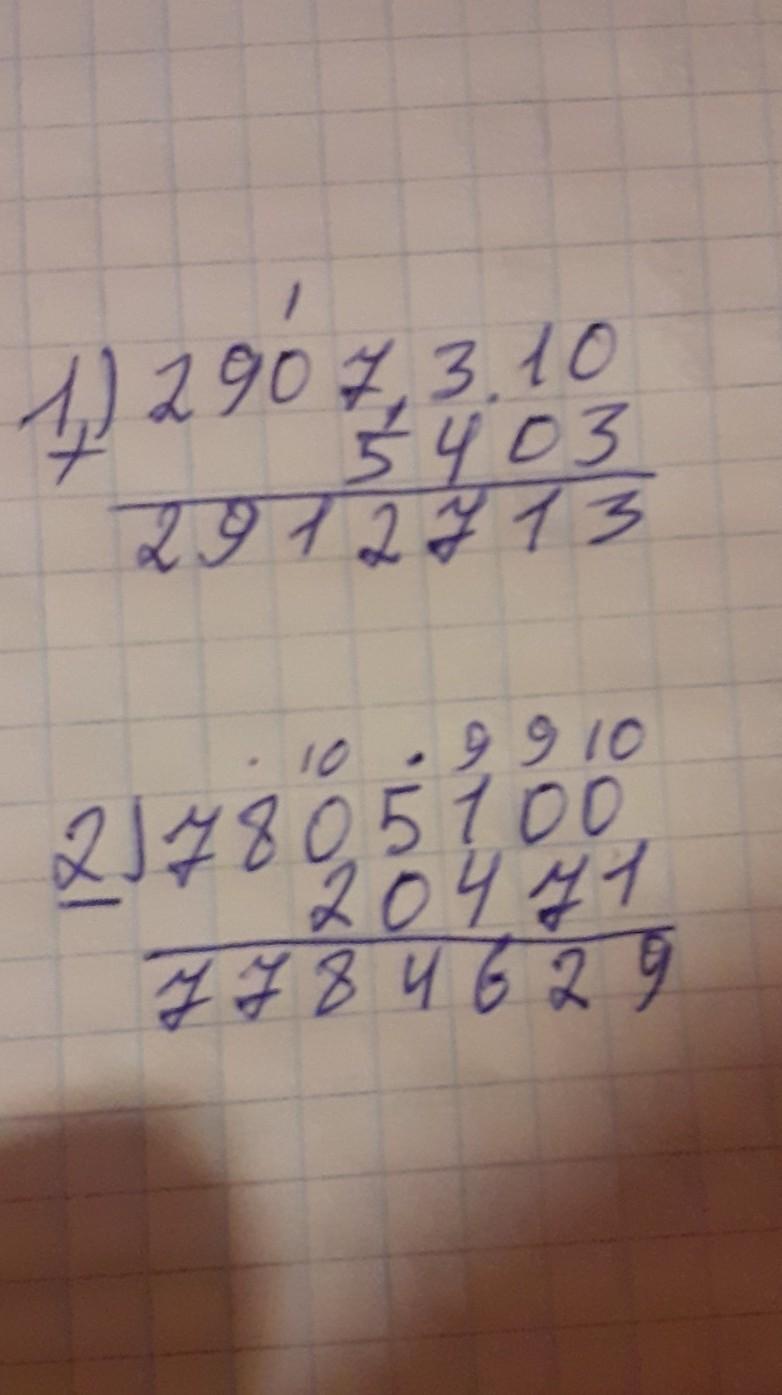 1
1) 2907.3.10
+ 5403
2912713
. 10 . 9 9 10
2) 7805100
− 20471
7784629